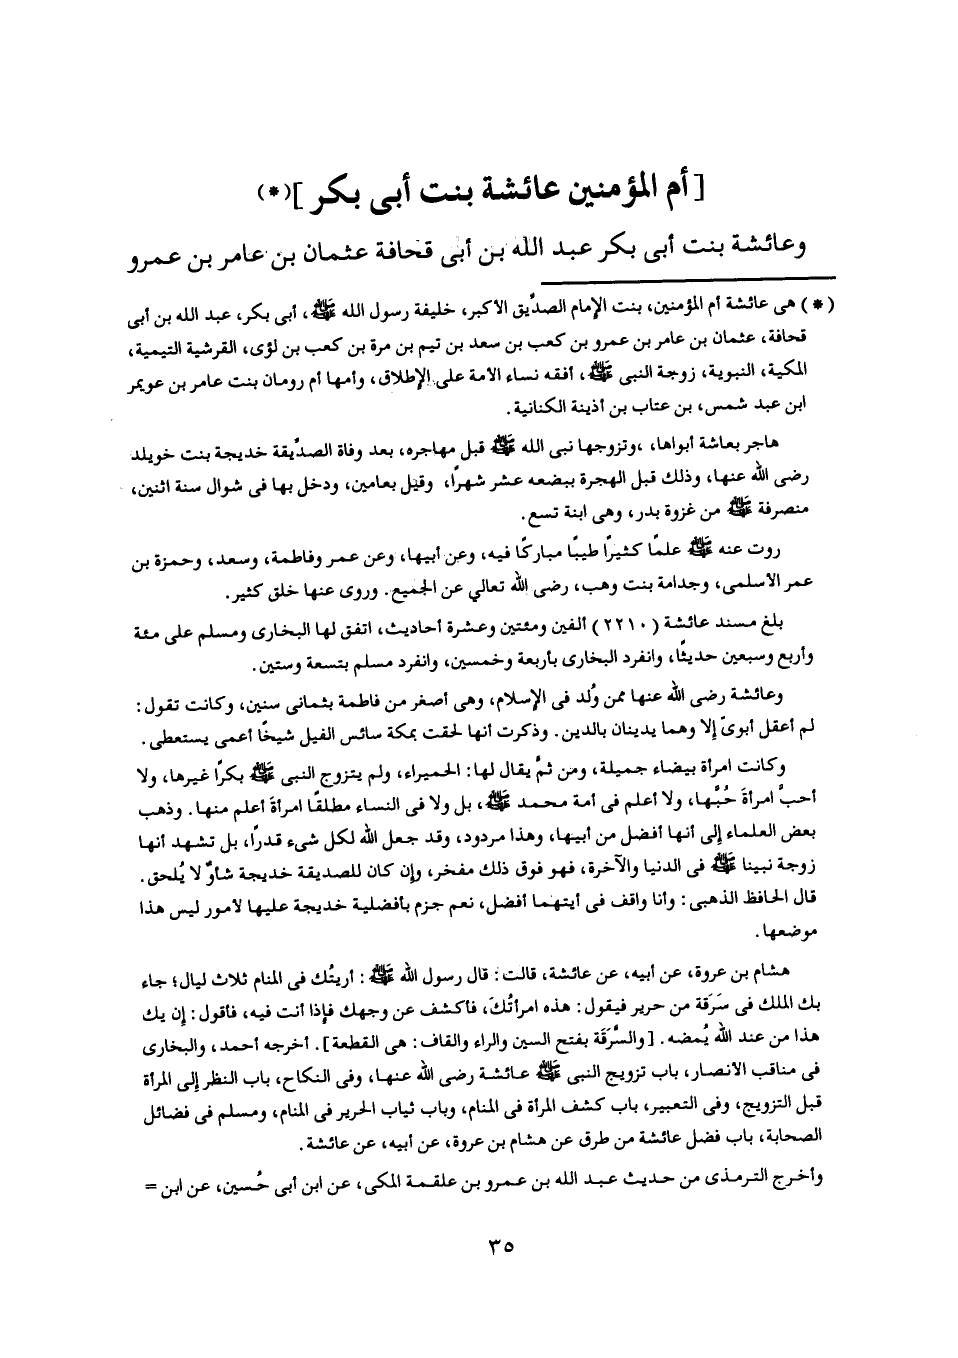 [أم المؤمنين عائشة بنت أبى بكر](*)
وعائشة بنت أبى بكر عبد الله بن أبى قحافة عثمان بن عامر بن عمرو
(*) هى عائشة أم المؤمنين، بنت الإمام الصدِّيق الأكبر، خليفة رسول الله ﷺ، أبى بكر، عبد الله بن أبى
قحافة، عثمان بن عامر بن عمرو بن كعب بن سعد بن تيم بن مرة بن كعب بن لؤى، القرشية التيمية،
المكية، النبوية، زوجة النبى ﷺ، أفقه نساء الأمة على الإطلاق، وأمها أم رومان بنت عامر بن عويمر
ابن عبد شمس، بن عتاب بن أذينة الكنانية.
هاجر بعاشة أبواها، ،وتزوجها نبى الله ﷺ قبل مهاجره، بعد وفاة الصدِّيقة خديجة بنت خويلد
رضى الله عنها، وذلك قبل الهجرة ببضعه عشر شهراً، وقيل بعامين، ودخل بها فى شوال سنة اثنين،
منصرفة ﷺ من غزوة بدر، وهى ابنة تسع.
روت عنه ﷺ علمًا كثيرًا طيبًا مباركًا فيه، وعن أبيها، وعن عمر وفاطمة، وسعد، وحمزة بن
عمر الأسلمى، وجدامة بنت وهب، رضى الله تعالي عن الجميع. وروى عنها خلق كثير.
بلغ مسند عائشة (٢٢١٠) ألفين ومئتين وعشرة أحاديث، اتفق لها البخارى ومسلم على مئة
وأربع وسبعين حديثًا، وانفرد البخارى بأربعة وخمسين، وانفرد مسلم بتسعة وستين.
وعائشة رضى الله عنها ممن وُلد فى الإسلام، وهى أصغر من فاطمة بثمانى سنين، وكانت تقول:
لم أعقل أبوىّ إلا وهما يدينان بالدين. وذكرت أنها لحقت بمكة سائس الفيل شيخًا أعمى يستعطى.
وكانت امرأة بيضاء جميلة، ومن ثمَّ يقال لها: الحميراء، ولم يتزوج النبى ﷺ بكرًا غيرها، ولا
أحبَّ امرأةَ حُبَّها، ولا أعلم فى أمة محمد ﷺ، بل ولا فى النساء مطلقًا امرأةَ أعلم منها. وذهب
بعض العلماء إلى أنها أفضل من أبيها، وهذا مردود، وقد جعل الله لكل شىء قدرًا، بل تشهد أنها
زوجة نبينا ﷺ فى الدنيا والآخرة، فهو فوق ذلك مفخر، وإن كان للصديقة خديجة شأوٌ لا يُلحق.
قال الحافظ الذهبى: وأنا واقف فى أيتهما أفضل، نعم جزم بأفضلية خديجة عليها لأمور ليس هذا
موضعها.
هشام بن عروة، عن أبيه، عن عائشة، قالت: قال رسول الله ﷺ: أريتُك فى المنام ثلاث ليال؛ جاء
بك الملك فى سَرَقة من حرير فيقول: هذه امرأتُكَ، فأكشف عن وجهك فإذا أنت فيه، فأقول: إن يك
هذا من عند الله يُمضه. [والسَّرَقَة بفتح السين والراء والقاف: هى القطعة]. أخرجه أحمد، والبخارى
فى مناقب الأنصار، باب تزويج النبى ﷺ عائشة رضى الله عنها، وفى النكاح، باب النظر إلى المرأة
قبل التزويج، وفى التعبير، باب كشف المرأة فى المنام، وباب ثياب الحرير فى المنام، ومسلم فى فضائل
الصحابة، باب فضل عائشة من طرق عن هشام بن عروة، عن أبيه، عن عائشة.
وأخرج الترمذى من حديث عبد الله بن عمرو بن علقمة المكى، عن ابن أبى حُسين، عن ابن =
٣٥